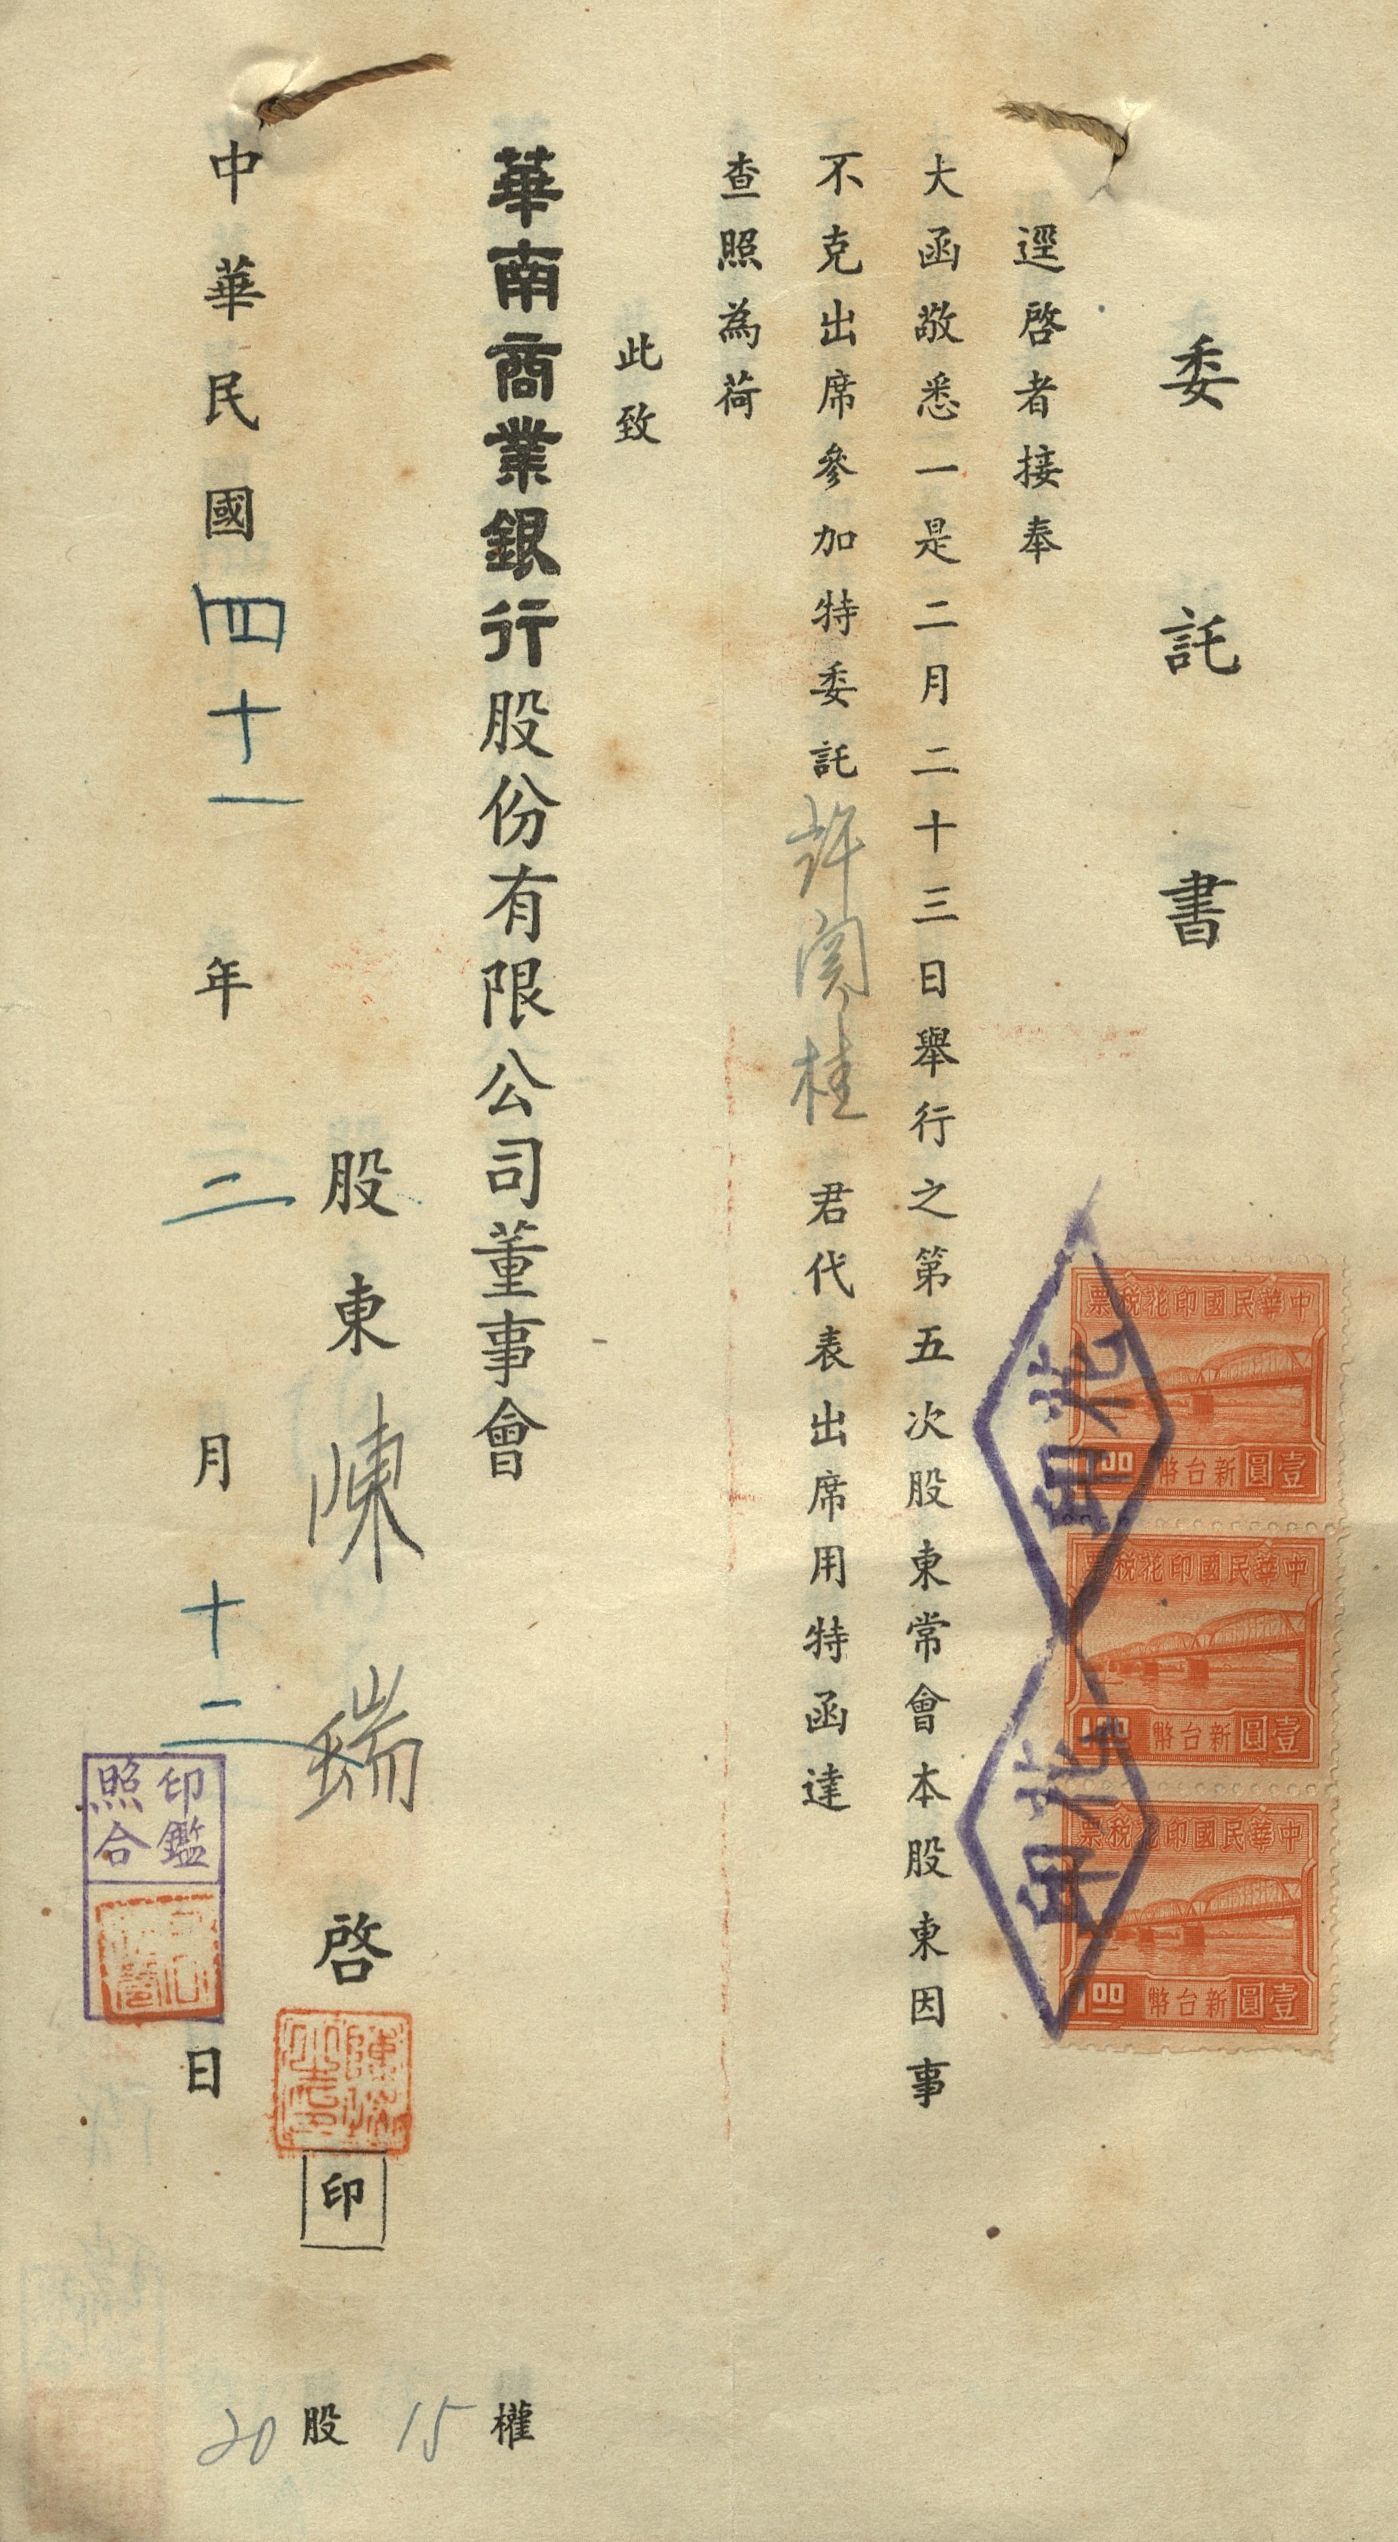 委託書
逕啓者接奉
大函敬悉一是二月二十三日舉行之第五次股東常會本股東因事
不克出席參加特委託許 桂君代表出席用特函達
查照為荷
此致
華南商業銀行股份有限公司董事會
股東陳瑞啓
印
中華民國四十一年二月十二日
印鑑
照合
20股15權
中華民國印花稅票
1.00 新台幣壹圓
中華民國印花稅票
1.00 新台幣壹圓
中華民國印花稅票
1.00 新台幣壹圓
印花
印花